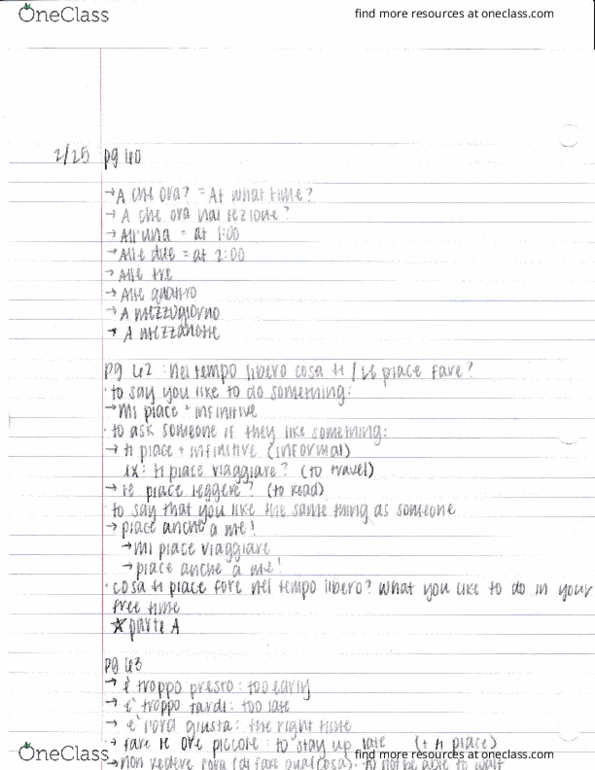 OneClass
find more resources at oneclass.com
2/25 pg 40
→A che ora? = At what time?
→ A che ora hai lezione?
→ All'una = at 1:00
→ Alle due = at 2:00
→ Alle tre
→ Alle quattro
→ A mezzogiorno
→ A mezzanotte
pg 42: Nel tempo libero cosa ti / Le piace fare?
· to say you like to do something:
→ Mi piace + infinitive
· to ask someone if they like something:
→ ti piace + infinitive (informal)
ex: ti piace viaggiare? (to travel)
→ le piace leggere? (to read)
· to say that you like the same thing as someone
→ piace anche a me!
→ Mi piace viaggiare
→ piace anche a me!
· cosa ti piace fare nel tempo libero? What you like to do in your
free time
☆ parte A
pg 43
→ è troppo presto: too early
→ è troppo tardi: too late
→ è l'ora giusta: the right time
→ fare le ore piccole: to stay up late (+ ti piace)
→ non vedere l'ora (di fare qualcosa): to not be able to wait
OneClass
find more resources at oneclass.com